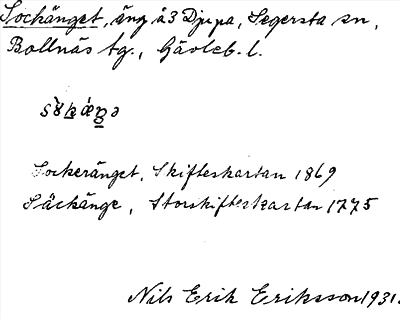 Sockänget, äng å 3 Djupa, Segersta sn,
Bollnäs tg., Gävleb. l.
Sockeränget, Skifteskartan 1869
Säckänge, Storskifteskartan 1775
Nils Erik Eriksson 1931.